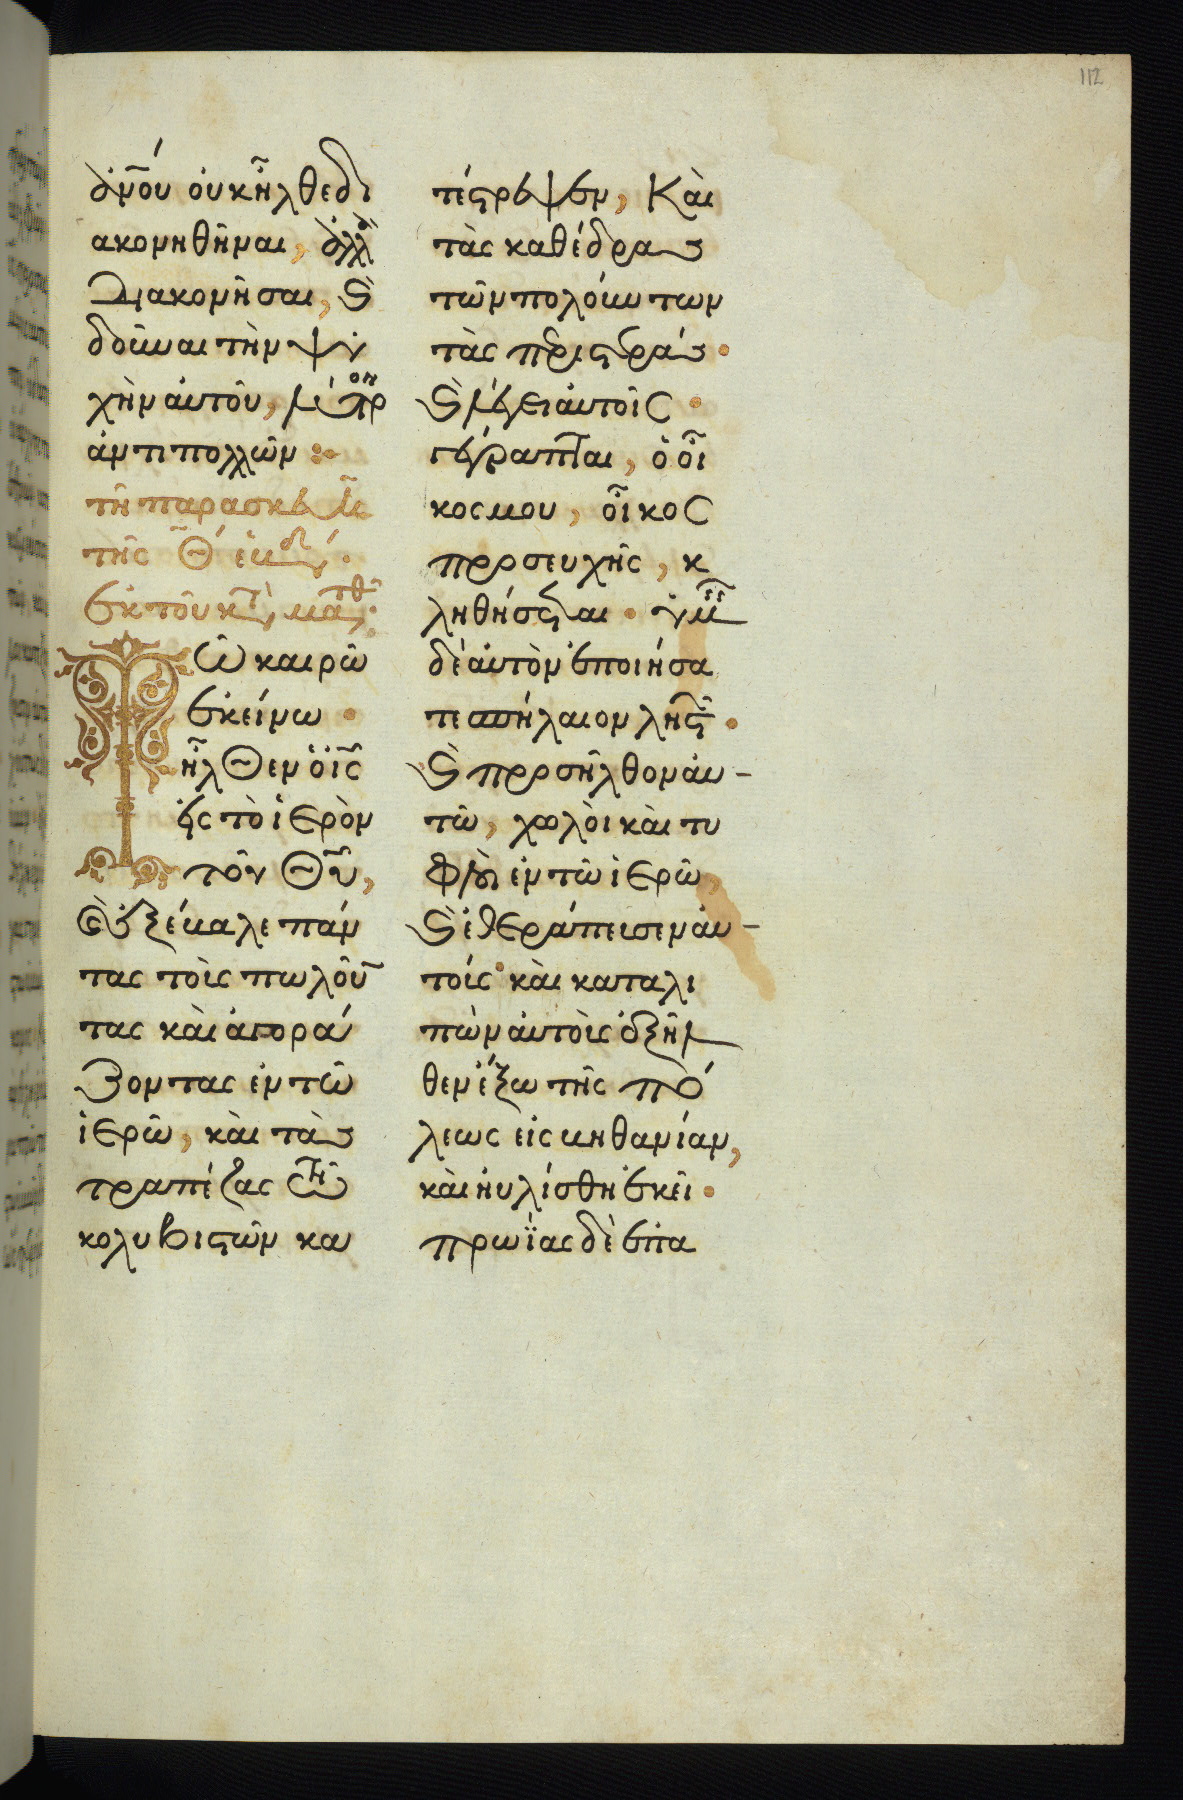 112
ἀν̅ου οὐκ ἦλθε δι
ακονηθῆναι, ἀλλ
διακονῆσαι, ϗ
δοῦναι τὴν ψυ
χὴν αὐτοῦ, λύτρον
ἀντι πολλῶν :
τῆ παρασκευῆς
τῆς θ ἑβδ.
ἐκ τοῦ κτ ματθ.
Τῶ καιρῶ
ἐκείνω ·
ἦλθεν ὁ ἰς
εἰς τὸ ἱερὸν
τοῦ Θυ,
ϗ ἐξέβαλε πάν
τας τοὶς πωλοῦ
τας καὶ ἀγορά
ζοντας ἐν τῶ
ἱερῶ, καὶ τὰς
τραπέζας τῶν
κολυβιστῶν κα
τέστρεψεν, Καὶ
τὰς καθέδρας
τῶν πολούντων
τὰς περιστεράς ·
ϗ λέγει αὐτοῖς ·
γέγραπται, ὁ οἶ
κος μου, οἶκος
προσευχῆς, κ
ληθήσεται · ὑμεῖς
δὲ αὐτὸν ἐποιήσα
τε σπήλαιον ληστῶν ·
ϗ προσῆλθον αὐ-
τῶ, χωλοὶ καὶ τυ
φλοὶ ἐν τῶ ἱερῶ,
ϗ ἐθεράπεισεν αὐ-
τοίς · καὶ καταλι
πὼν αὐτοὶς ἐξῆλ
θεν ἔξω τῆς πό
λεως εἰς βηθανίαν,
καὶ ηὐλίσθη ἐκεῖ ·
πρωΐας δὲ ἐπα